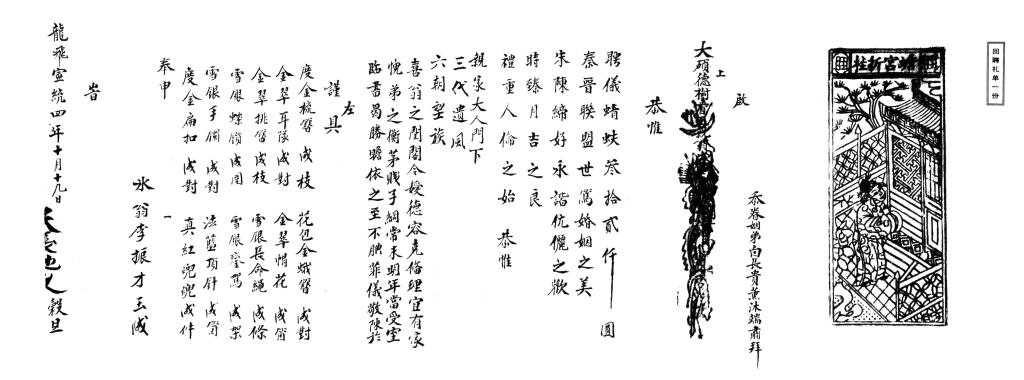 回聘礼单一份
蟾宮折桂
忝眷姻弟白長貴薰沐端肅拜
啟
上
大碩德樹
恭惟
聘儀蜻蚨叄拾貳仟 圓
秦晉聯盟世篤婚姻之美
朱陳締好永諧伉儷之歡
時臻月吉之良
禮重人倫之始 恭惟
親家大人門下
三代遺風
六朝望族
喜翁之閨閣令嫒德容克脩理宜有家
愧弟之衡茅賤子綱常未明年當受室
臨書曷勝瞻依之至不腆菲儀敬陳於
左
謹具
度金梳簪 成枝 花包金蛾簪 成對
金翠耳墜 成對 金翠帽花 成個
金翠挑簪 成枝 雪银長命繩 成條
雪银蝶鐲 成圈 雪银鸞駕 成架
雪银手鐲 成對 法藍頂針 成個
度金扁扣 成對 真紅兜兜 成件
奉申 一
冰翁李振才玉成
旹
龍飛宣統四年十月十九日 榖旦